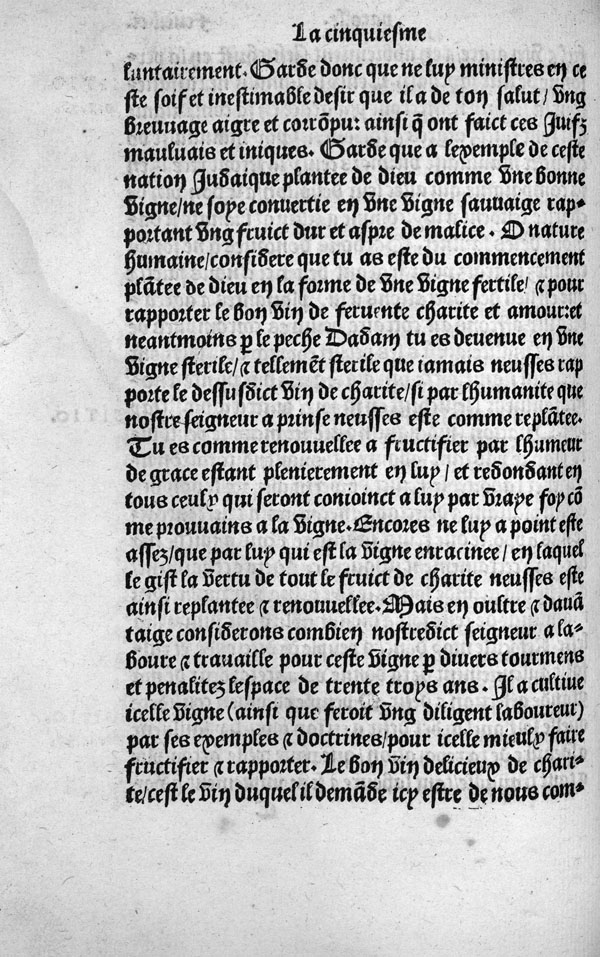 La cinquiesme
luntairement. Garde donc que ne luy ministres en ce
ste soif et inestimable desir que il a de ton salut / vng
breuuage aigre et corrõpu: ainsi q̃ ont faict ces Juifz
mauluais et iniques. Garde que a lexemple de ceste
nation Judaique plantee de dieu comme vne bonne
vigne / ne soye conuertie en vne vigne sauuaige rap-
portant vng fruict dur et aspre de malice. O nature
humaine / considere que tu as este du commencement
plãtee de dieu en la forme de vne vigne fertile / ⁊ pour
rapporter le bon vin de feruente charite et amour: et
neantmoins ꝑ le peche Dadam tu es deuenue en vne
vigne sterile / ⁊ tellemẽt sterile que iamais neusses rap
porte le dessusdict vin de charite / si par lhumanite que
nostre seigneur a prinse neusses este comme replãtee.
Tu es comme renouuellee a fructifier par lhumeur
de grace estant plenierement en luy / et redondant en
tous ceulx qui seront conioinct a luy par vraye foy cõ
me prouuains a la vigne. Encores ne luy a point este
assez / que par luy qui est la vigne enracinee / en laquel
le gist la vertu de tout le fruict de charite neusses este
ainsi replantee ⁊ renouuellee. Mais en oultre ⁊ dauã
taige considerons combien nostredict seigneur a la-
boure ⁊ trauaille pour ceste vigne ꝑ diuers tourmens
et penalitez lespace de trente troys ans. Il a cultiue
icelle vigne (ainsi que feroit vng diligent laboureur)
par ses exemples ⁊ doctrines / pour icelle mieulx faire
fructifier ⁊ rapporter. Le bon vin delicieux de chari-
te / cest le vin duquel il demãde icy estre de nous com-